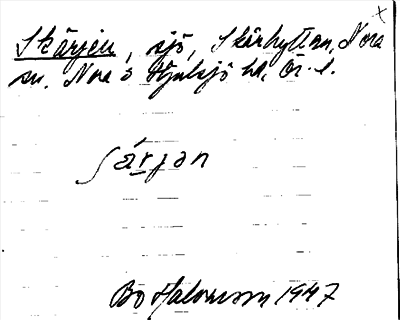 Skärjen, sjö, Skärhyttan, Nora
sn. Nora o Hjulsjö hd, Ör. l.
ʃä́rjən
Bo 1947